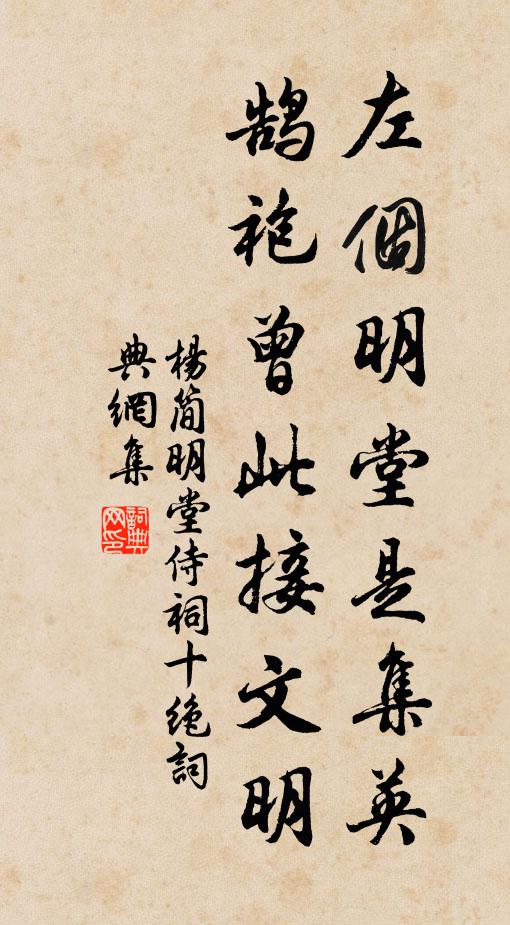 左個明堂是集英
鹄袍曾此接文明
楊简明堂侍祠十絶詞
典網集
詞典
网印